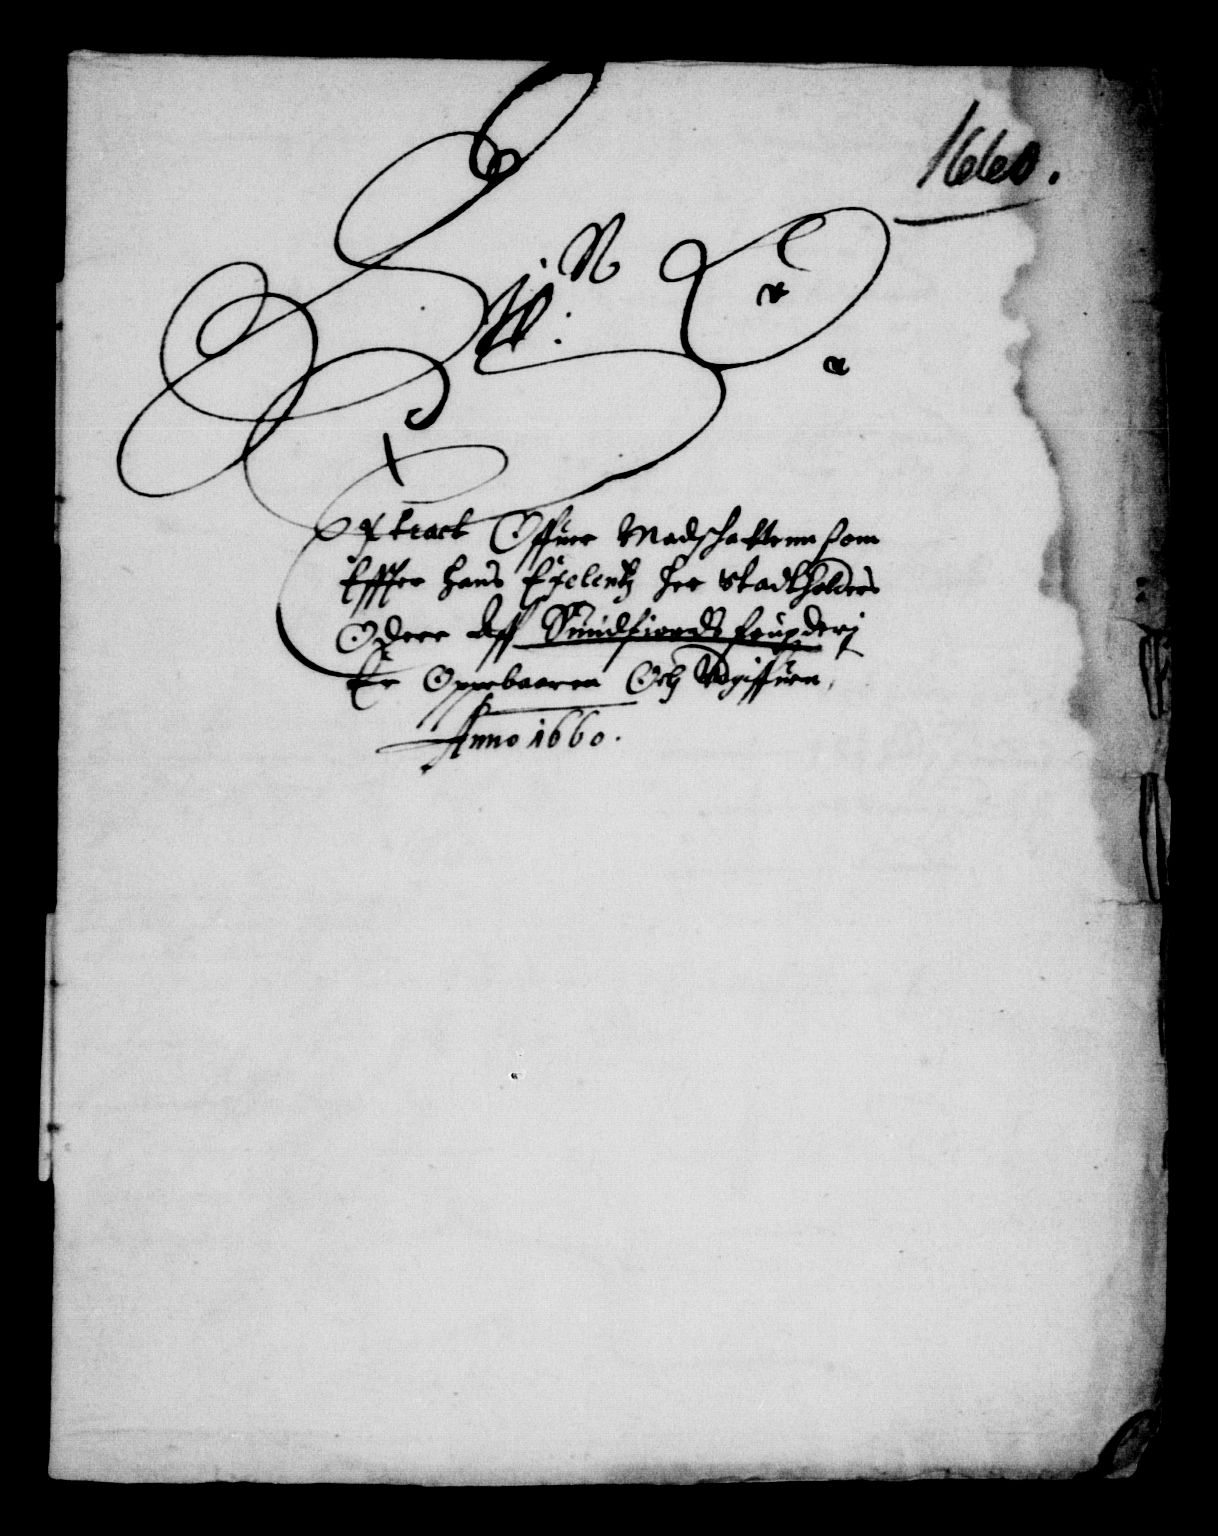 1660.
Extract Offuer Madschattenn som
Effter Hans Exelentz Her Stadtholders
Ordere Aff Sundfiords fougderj
Er Oppebaaren Och Udgiffuen,
Anno 1660.